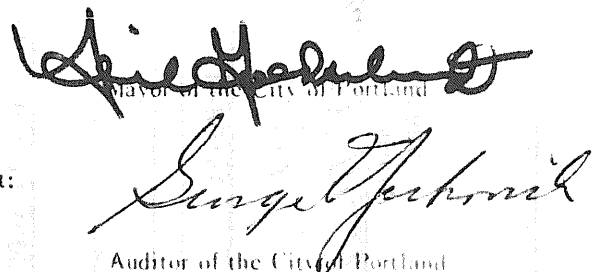 Neil Goldschmidt
Mayor of the City of Portland
t:
George Yerkovich
Auditor of the City of Portland